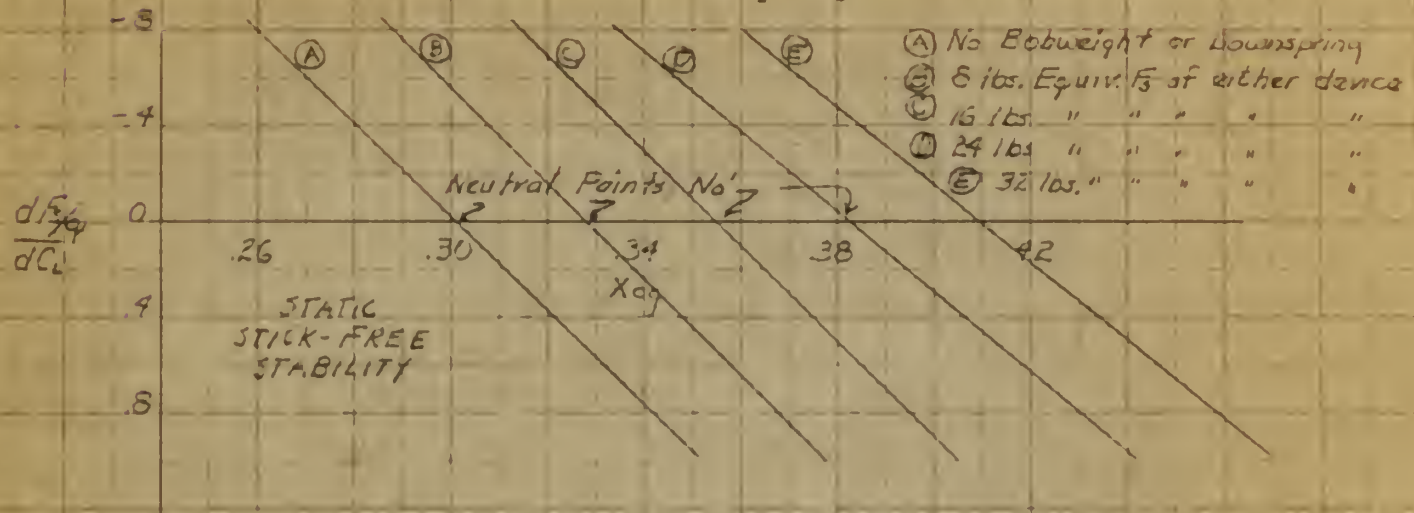 -.8
Ⓐ Ⓑ Ⓒ Ⓓ Ⓔ
Ⓐ No Bobweight or Downspring
Ⓑ 8 lbs. Equiv. Fs of either device
Ⓒ 16 lbs. " " " " "
Ⓓ 24 lbs " " " " "
Ⓔ 32 lbs. " " " " "
-.4
Neutral Points No'
dFs/q
dCL
0
.26 .30 .34 .38 .42
Xcg
.4
STATIC
STICK-FREE
STABILITY
.8